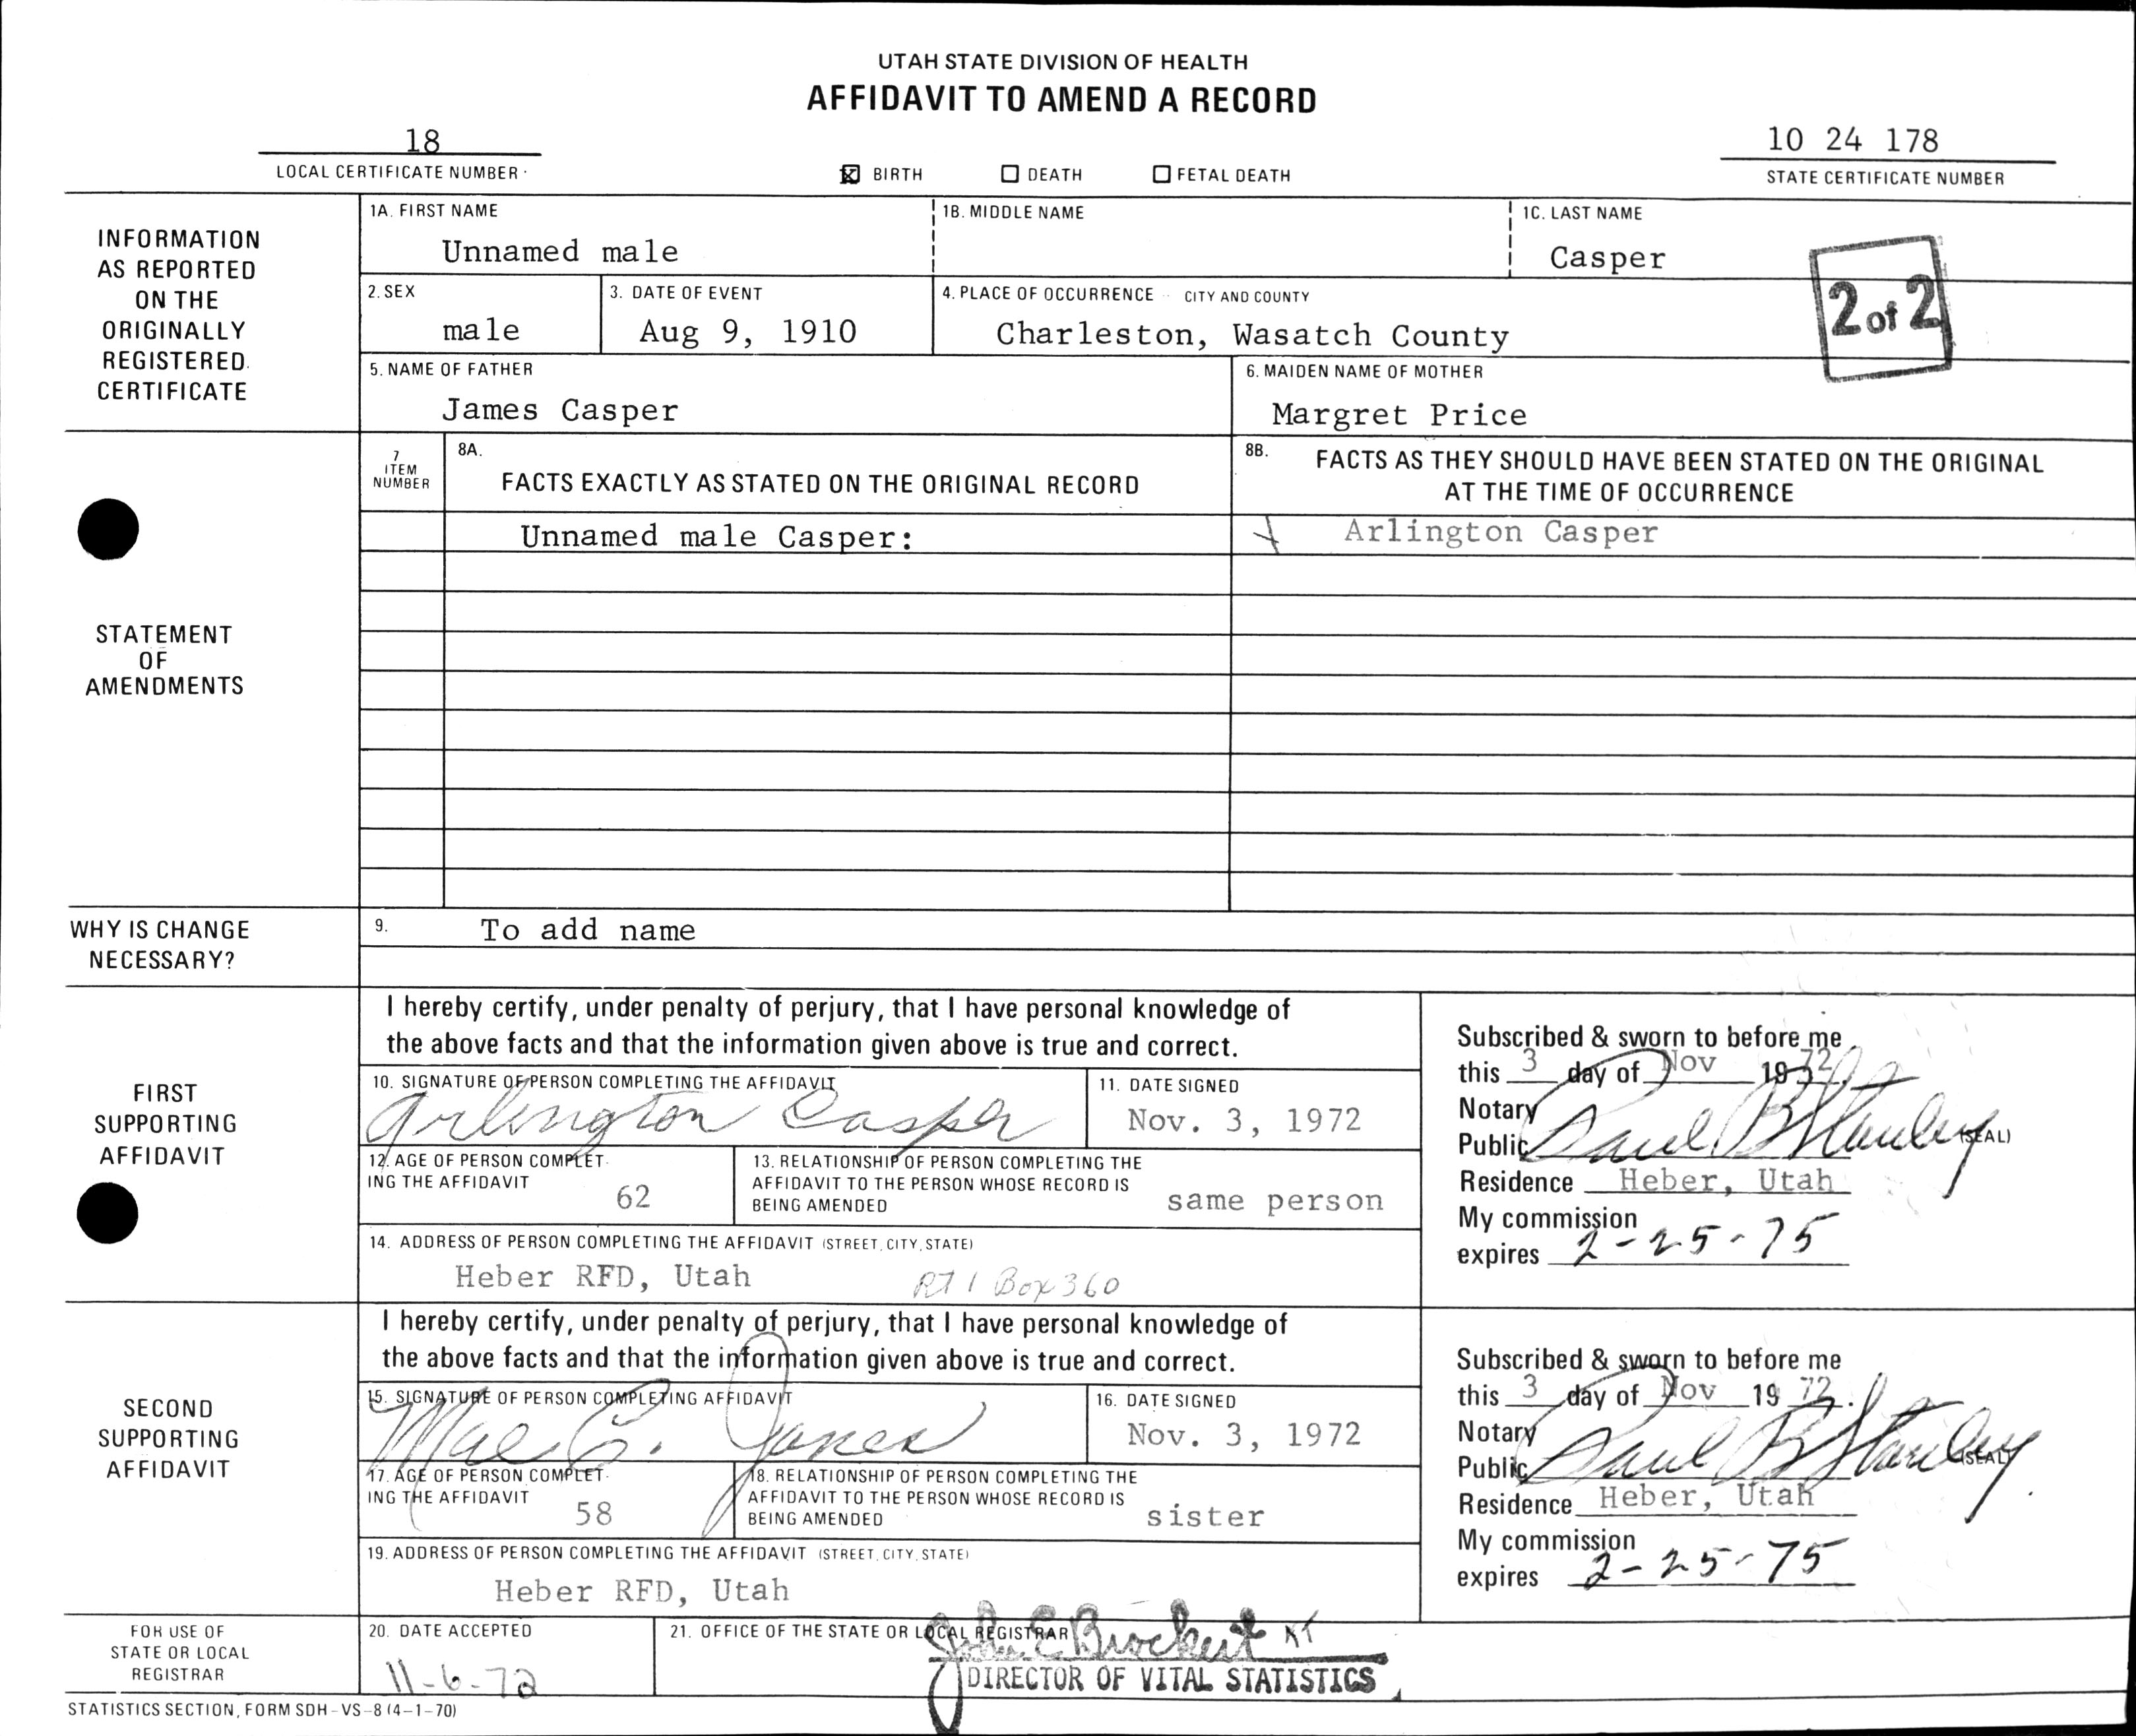 UTAH STATE DIVISION OF HEALTH
AFFIDAVIT TO AMEND A RECORD
18
LOCAL CERTIFICATE NUMBER
☒ BIRTH ☐ DEATH ☐ FETAL DEATH
10 24 178
STATE CERTIFICATE NUMBER
INFORMATION
AS REPORTED
ON THE
ORIGINALLY
REGISTERED
CERTIFICATE
1A. FIRST NAME
Unnamed male
1B. MIDDLE NAME
1C. LAST NAME
Casper
2 of 2
2. SEX
male
3. DATE OF EVENT
Aug 9, 1910
4. PLACE OF OCCURRENCE - CITY AND COUNTY
Charleston, Wasatch County
5. NAME OF FATHER
James Casper
6. MAIDEN NAME OF MOTHER
Margret Price
STATEMENT
OF
AMENDMENTS
7
ITEM
NUMBER
8A.
FACTS EXACTLY AS STATED ON THE ORIGINAL RECORD
8B.
FACTS AS THEY SHOULD HAVE BEEN STATED ON THE ORIGINAL
AT THE TIME OF OCCURRENCE
Unnamed male Casper:
Arlington Casper
WHY IS CHANGE
NECESSARY?
9. To add name
FIRST
SUPPORTING
AFFIDAVIT
I hereby certify, under penalty of perjury, that I have personal knowledge of
the above facts and that the information given above is true and correct.
10. SIGNATURE OF PERSON COMPLETING THE AFFIDAVIT
Arlington Casper
11. DATE SIGNED
Nov. 3, 1972
12. AGE OF PERSON COMPLET-
ING THE AFFIDAVIT
62
13. RELATIONSHIP OF PERSON COMPLETING THE
AFFIDAVIT TO THE PERSON WHOSE RECORD IS
BEING AMENDED
same person
14. ADDRESS OF PERSON COMPLETING THE AFFIDAVIT (STREET, CITY, STATE)
Heber RFD, Utah RT 1 Box 360
Subscribed & sworn to before me
this 3 day of Nov 1972.
Notary
Public Paul B Stanley (SEAL)
Residence Heber, Utah
My commission
expires 2-25-75
SECOND
SUPPORTING
AFFIDAVIT
I hereby certify, under penalty of perjury, that I have personal knowledge of
the above facts and that the information given above is true and correct.
15. SIGNATURE OF PERSON COMPLETING AFFIDAVIT
Mae C. Jones
16. DATE SIGNED
Nov. 3, 1972
17. AGE OF PERSON COMPLET-
ING THE AFFIDAVIT
58
18. RELATIONSHIP OF PERSON COMPLETING THE
AFFIDAVIT TO THE PERSON WHOSE RECORD IS
BEING AMENDED
sister
19. ADDRESS OF PERSON COMPLETING THE AFFIDAVIT (STREET, CITY, STATE)
Heber RFD, Utah
Subscribed & sworn to before me
this 3 day of Nov 1972.
Notary
Public Paul B Stanley (SEAL)
Residence Heber, Utah
My commission
expires 2-25-75
FOR USE OF
STATE OR LOCAL
REGISTRAR
20. DATE ACCEPTED
11-6-72
21. OFFICE OF THE STATE OR LOCAL REGISTRAR
John E Brockert
DIRECTOR OF VITAL STATISTICS
STATISTICS SECTION, FORM SDH-VS-8 (4-1-70)